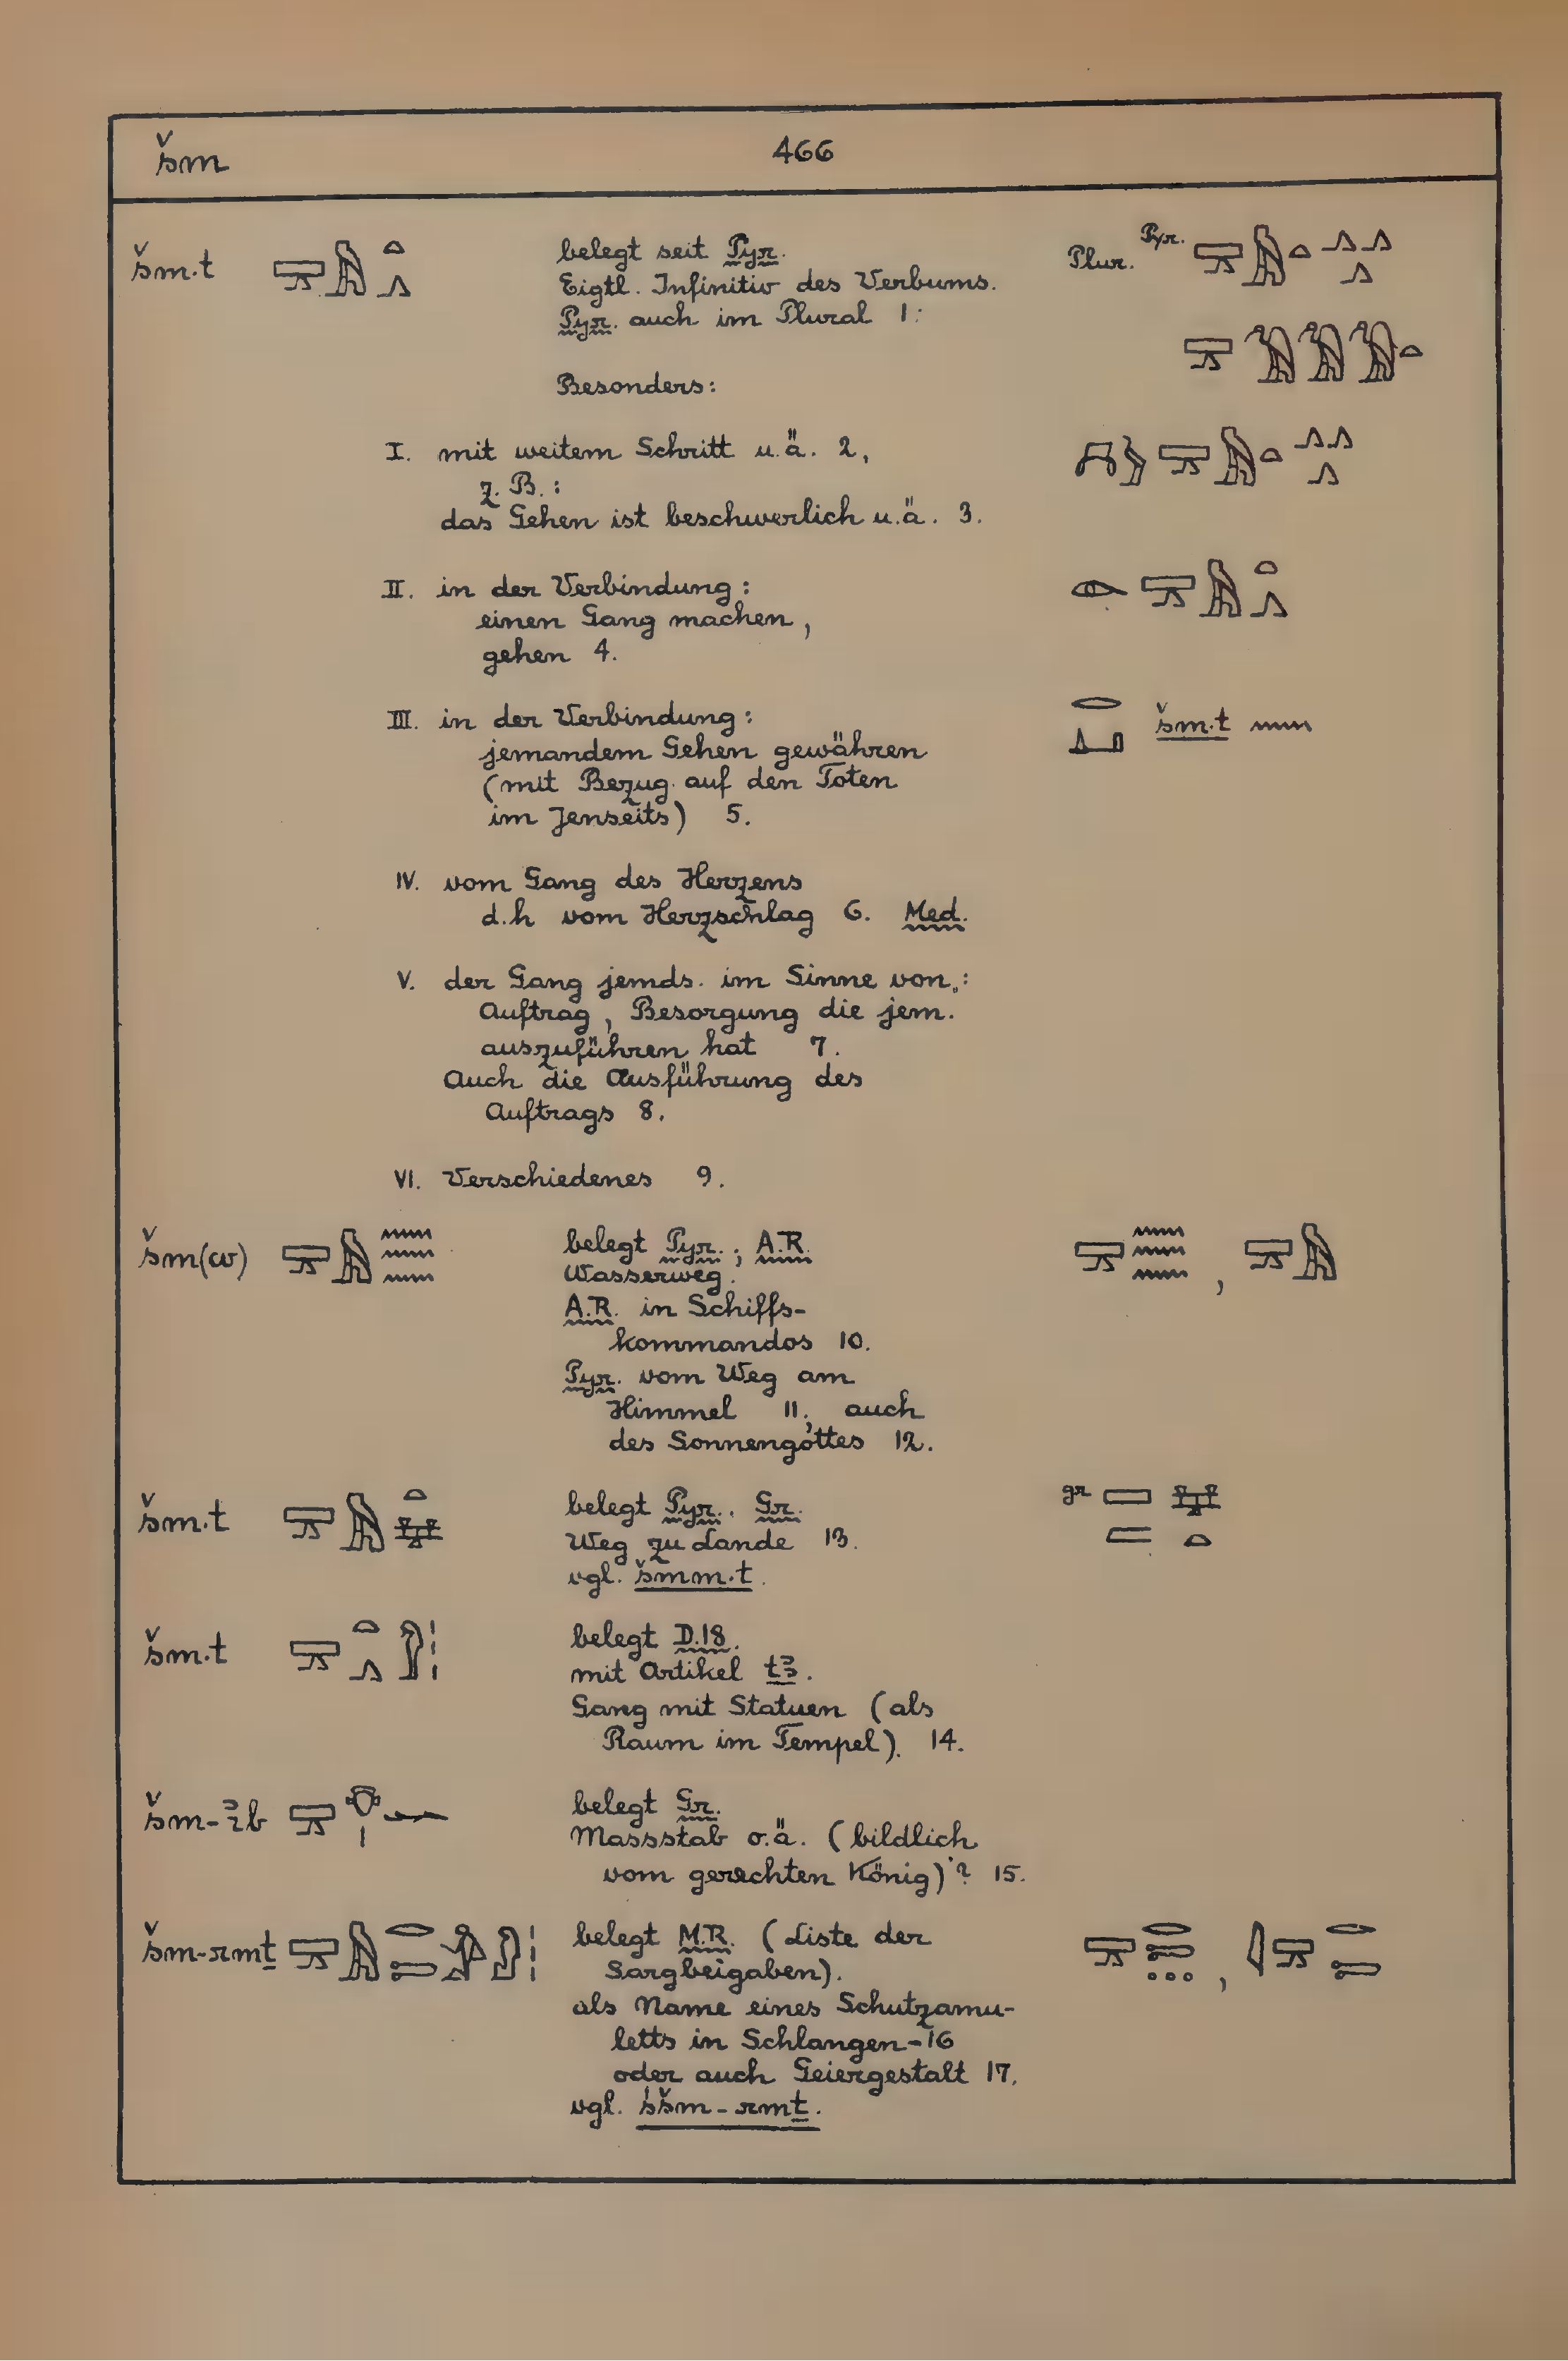 šm 466
šm.t belegt seit Pyr. Plur. Pyr.
Eigtl. Infinitiv des Verbums.
Pyr. auch im Plural 1:
Besonders:
I. mit weitem Schritt u.ä. 2,
z.B.:
das Gehen ist beschwerlich u.ä. 3.
II. in der Verbindung:
einen Gang machen,
gehen 4.
III. in der Verbindung: šm.t
jemandem Gehen gewähren
(mit Bezug auf den Toten
im Jenseits) 5.
IV. vom Gang des Herzens
d.h vom Herzschlag 6. Med.
V. der Gang jemds. im Sinne von:
Auftrag, Besorgung die jem.
auszuführen hat 7.
Auch die Ausführung des
Auftrags 8.
VI. Verschiedenes 9.
šm(w) belegt Pyr.; A.R.
Wasserweg.
A.R. in Schiffs-
kommandos 10.
Pyr. vom Weg am
Himmel 11; auch
des Sonnengottes 12.
šm.t belegt Pyr.. Gr. gr
Weg zu Lande 13.
vgl. šmm.t.
šm.t belegt D.18.
mit Artikel tꜣ.
Gang mit Statuen (als
Raum im Tempel). 14.
šm-ꜣib belegt Gr.
Massstab o.ä. (bildlich
vom gerechten König)? 15.
šm-rmṯ belegt M.R. (Liste der
Sargbeigaben).
als Name eines Schutzamu-
letts in Schlangen-16
oder auch Geiergestalt 17.
vgl. śšm-rmṯ.